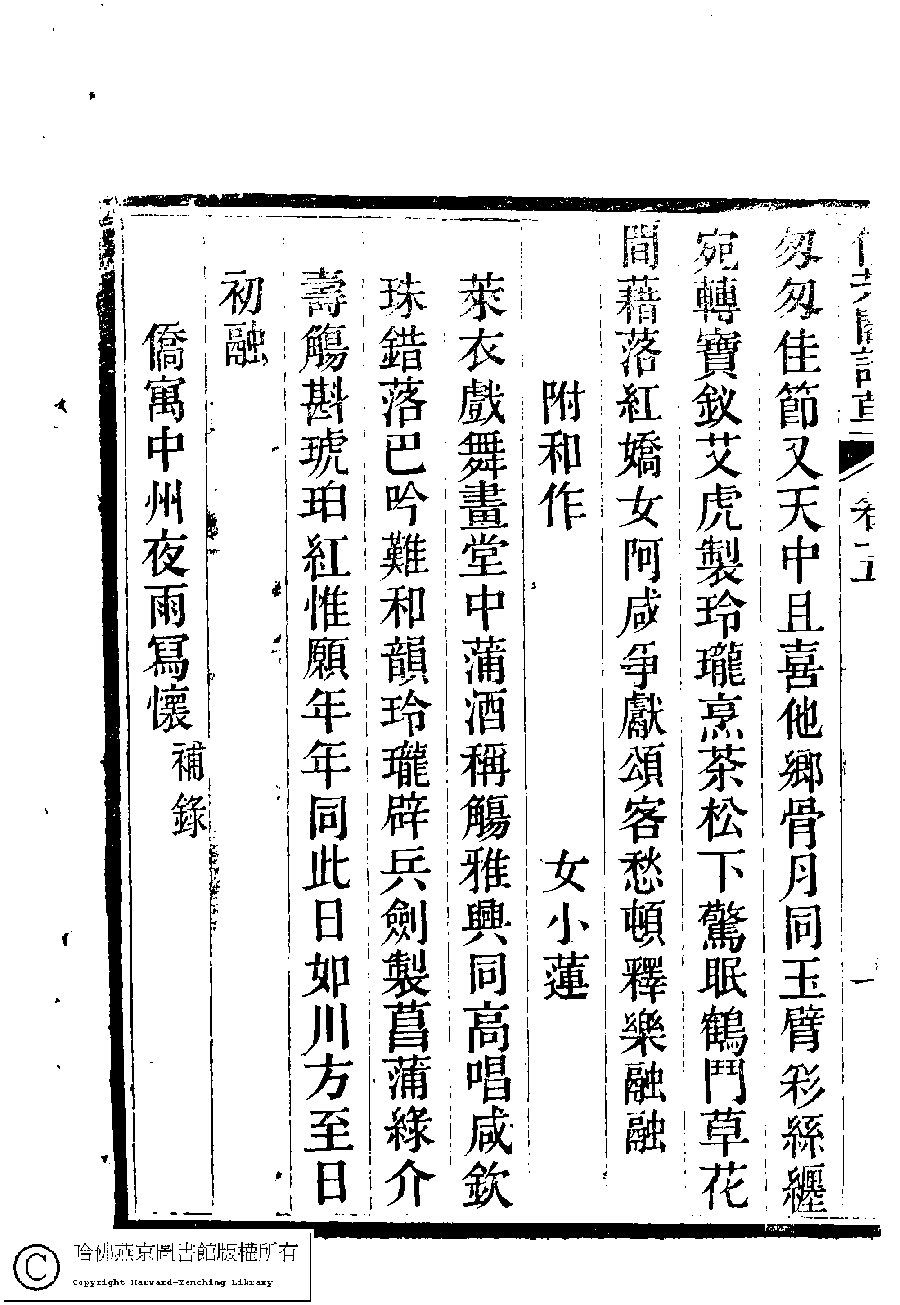 詩草 卷五 一
匆匆佳節又天中且喜他鄉骨月同玉臂彩絲纏
宛轉寶釵艾虎製玲瓏烹茶松下驚眠鶴鬥草花
間藉落紅嬌女阿咸爭獻頌客愁頓釋樂融融
附和作 女小蓮
萊衣戲舞畫堂中蒲酒稱觴雅興同高唱咸欽
珠錯落巴吟難和韻玲瓏辟兵劍製菖蒲綠介
壽觴斟琥珀紅惟願年年同此日如川方至日
初融
僑寓中州夜雨寫懷 補錄
哈佛燕京圖書館版權所有
Copyright Harvard-Yenching Library